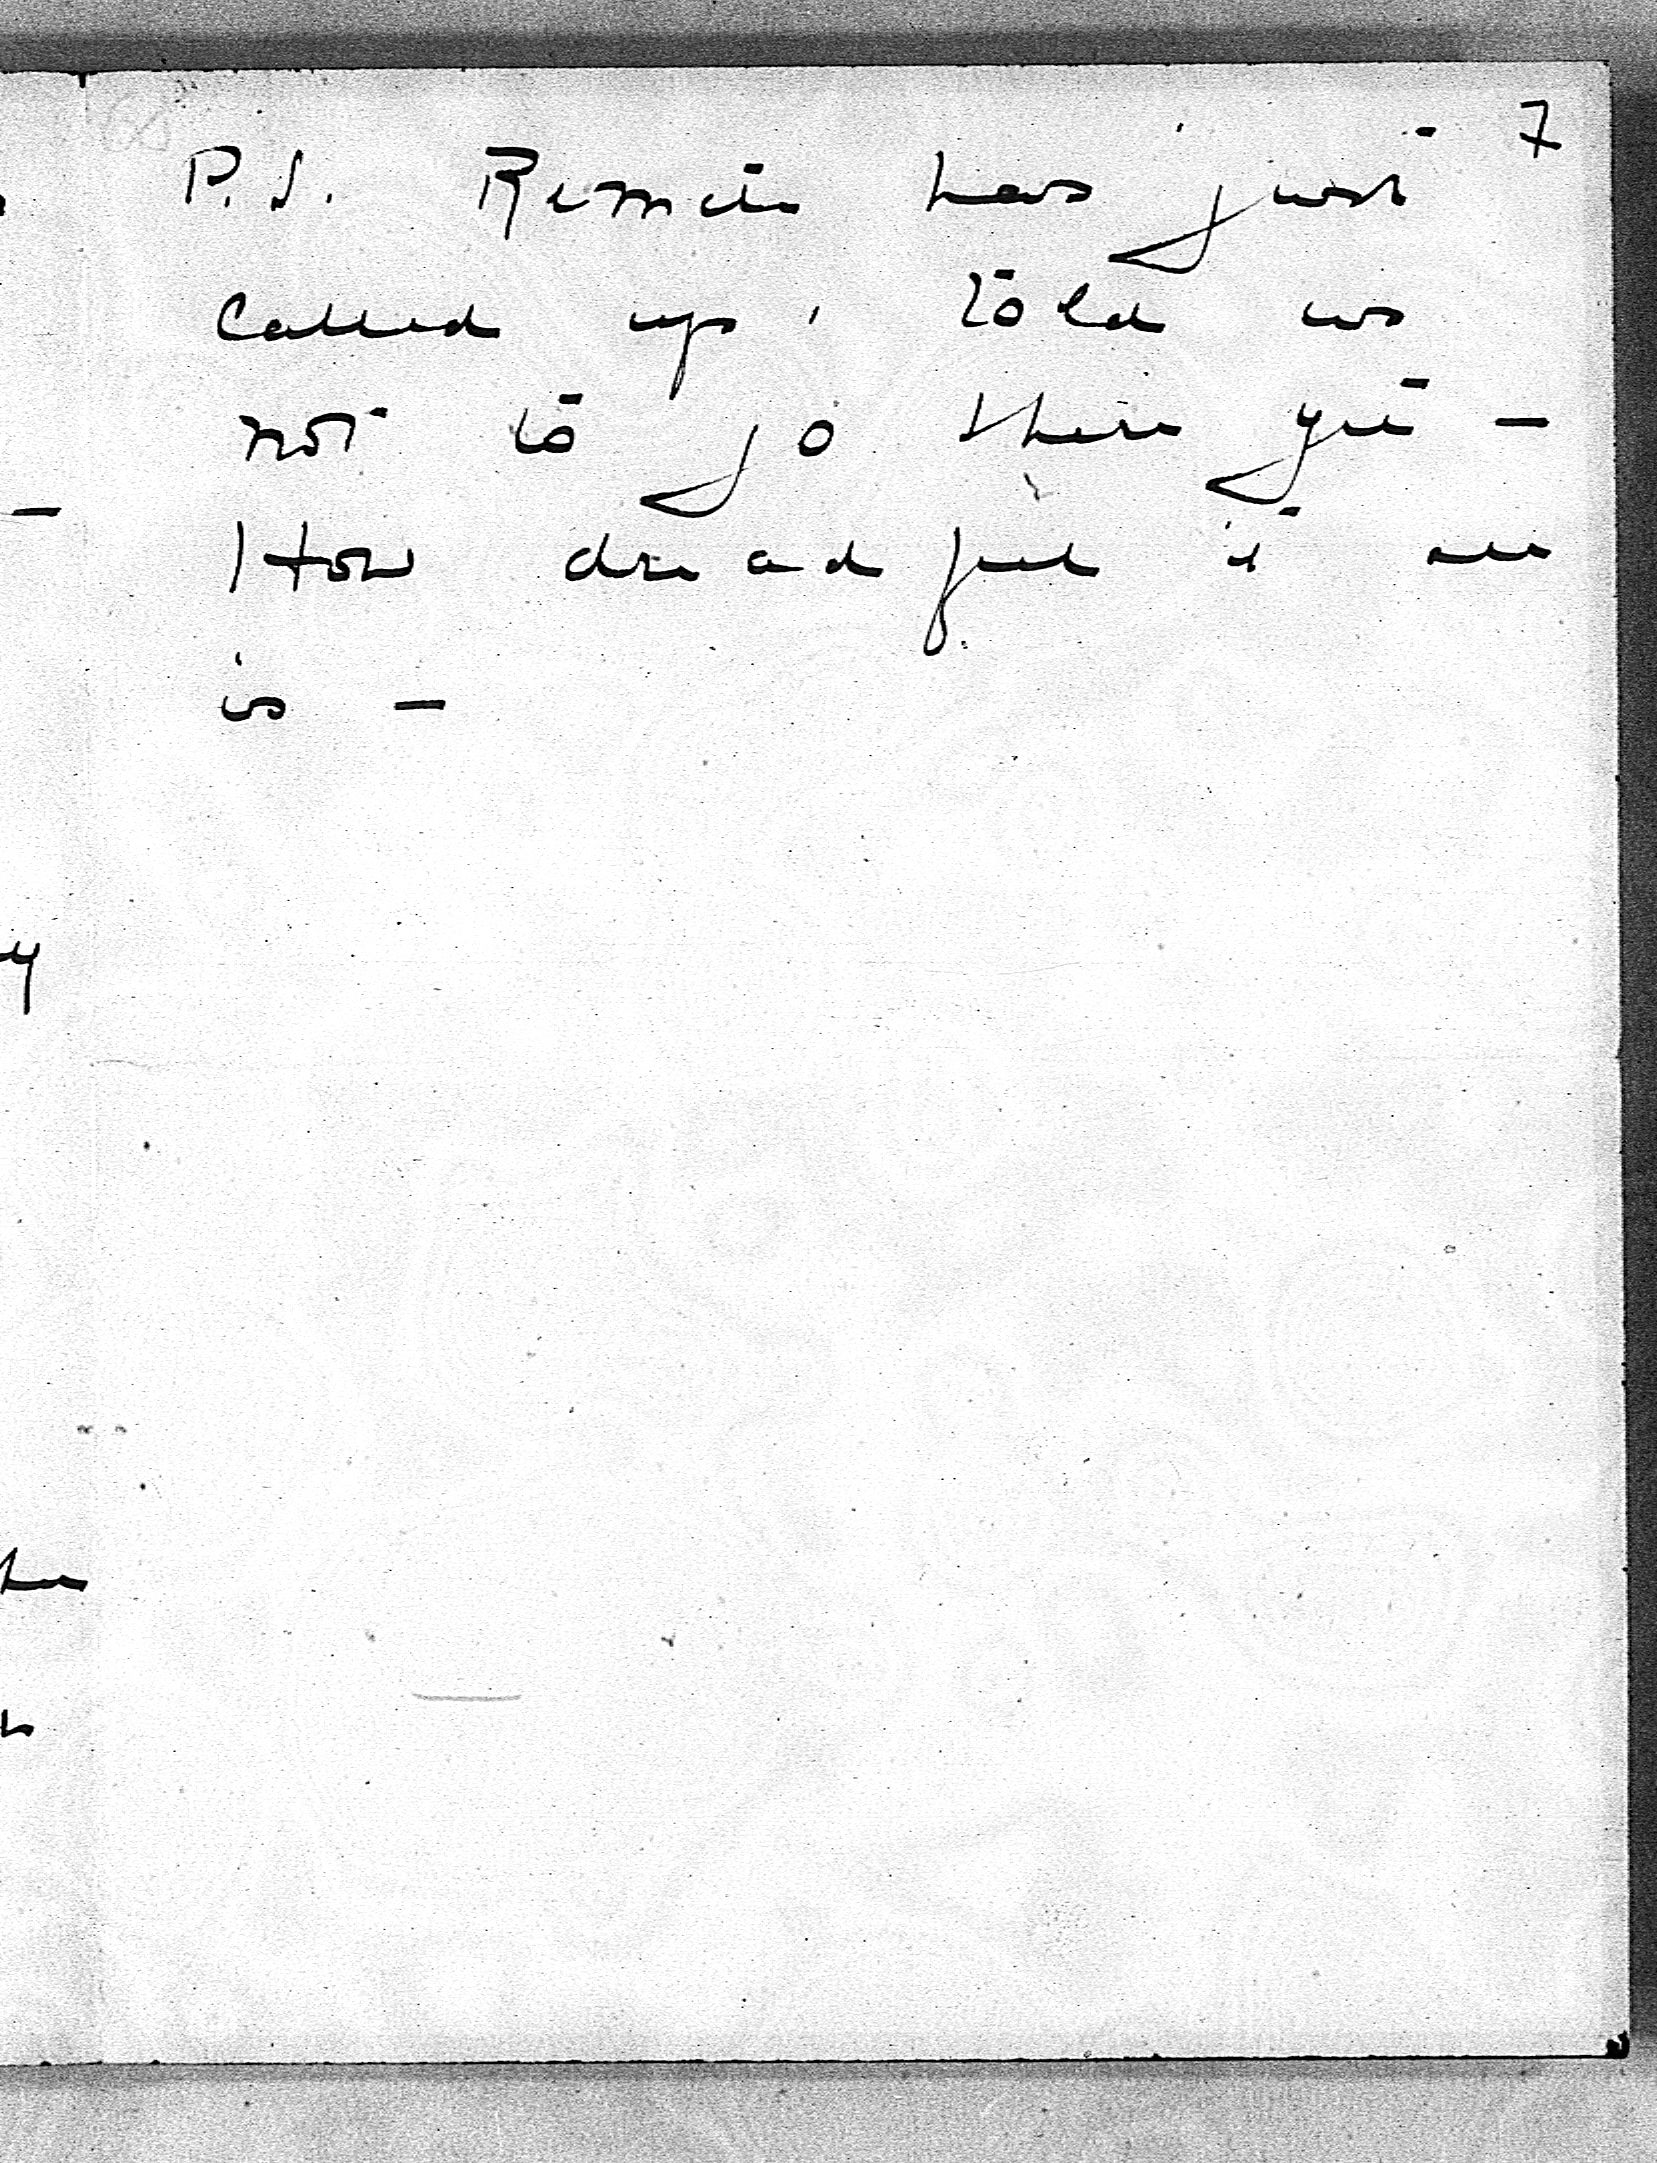 7
P.S. has just
called up, told us
not to go there yet –
How dreadful it all
is –